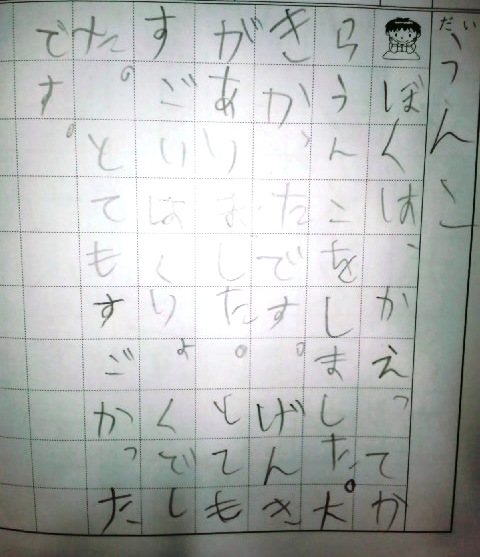 だい
うんこ
ぼくは、かえってか
らうんこをしました。大
きかったです。げんき
がありました。とても
すごいはくりょくでし
た。とてもすごかった
です。